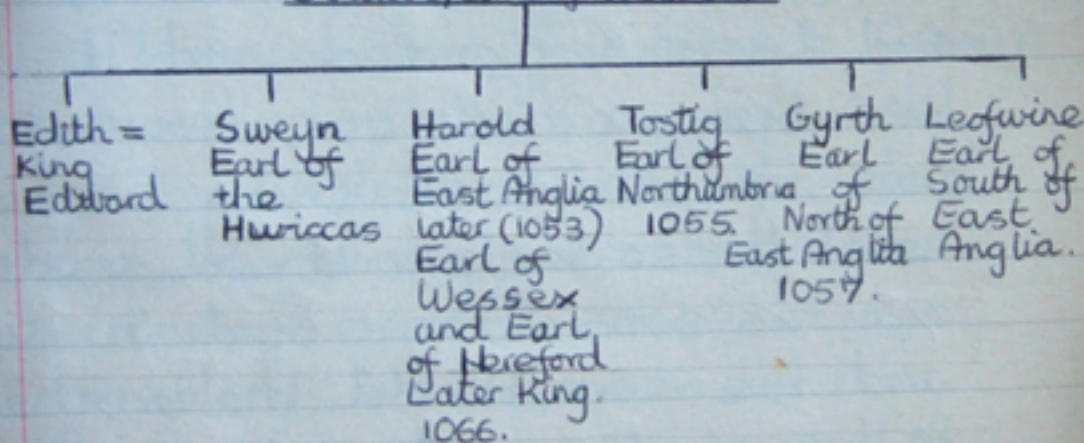 Edith =
King
Edward
Sweyn
Earl of
the
Huriccas
Harold
Earl of
East Anglia
later (1053)
Earl of
Wessex
and Earl
of Hereford
Later King.
1066.
Tostig
Earl of
Northumbria
1055.
Gyrth
Earl
of
North of
East Anglia
1057.
Leofwine
Earl of
South of
East
Anglia.